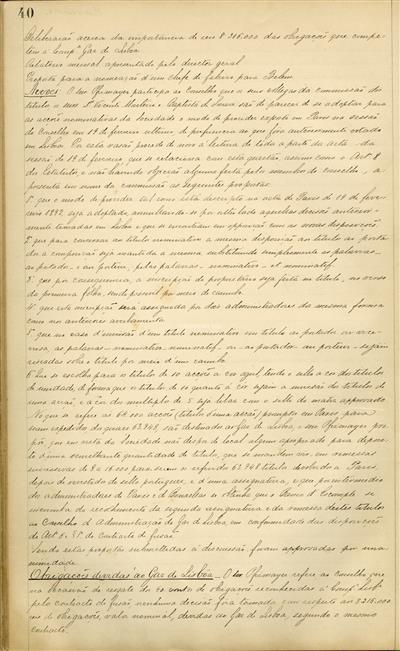 40
Deliberação acerca da importancia de reis 8:216.000 das obrigações que compe-
tem á Compª Gaz de Lisboa
Relatorio mensal apresentado pelo director geral
Proposta para a nomeação d'um chefe de fabrico para Belem
Acções O Snr Pfizmayer participa ao Conselho que os seus collegas da commissão dos
titulos os snrs Dr Vicente Monteiro e Baptista de Sousa são de parecer de se adoptar para
as acções nominativas da Sociedade o modo de proceder exposto em Paris na sessão
do Conselho em 19 de fevereiro ultimo de preferencia ao que fora anteriormente votado
em Lisboa. Por esta rasão procede de novo á leitura de toda a parte da acta da
sessão de 19 de fevereiro que se relaciona com esta questão, assim como o Artº 8
dos Estatutos, e não havendo objecção alguma feita pelos membros do conselho, a-
presenta em nome da commissão as seguintes propostas:
1º que o modo de proceder tal como está descripto na acta de Paris de 19 de feve-
reiro 1892, seja adoptado, annullando-se por esta todas aquellas decisões anterior-
mente tomadas em Lisboa e que se encontram em opposição com as novas disposições.
2º que para conservar ao titulo nominativo a mesma disposição do titulo ao porta-
dor a composição seja mantida a mesma substituindo simplesmente as palavras
ao portador e au porteur, pelas palavras nominativa et nominatif.
3º que por consequencia, a inscripção do proprietario seja feita no titulo, no verso
da primeira folha, sendo possivel por meio de carimbo.
4º que esta inscripção será assignada por dois administradores da mesma forma
como no anterior averbamento
5º que no caso d'emissão d'um titulo nominativo em titulo ao portador ou vice-
versa, as palavras nominativa nominatif ou ao portador au porteur sejam
viradas sobre o titulo por meio d'um carimbo
6º que se escolha para o titulo de 10 acções a cor azul, tendo o sello a cor do titulo
de unidade, de forma que o titulo de 10 quanto á cor sejam a inversão do titulo de
uma acção, e a cor do multiplo de 5 seja lilaz com o sello do matiz approvado.
No que se refere ás 60.000 acções (titulo d'uma acção) promptos em Paris para
serem expedidos dos quaes 63.948 são destinados ao Gaz de Lisboa, o snr Pfizmayer pro-
põe, que em vista da Sociedade não dispor de local algum apropriado para deposi-
to d'uma semelhante quantidade de titulos, que se mandem vir, em remessas
successivas de 8 a 16.000 para serem os referidos 63.948 titulos devolvidos a Paris,
depois de revestidos do sello portuguez, e d'uma assignatura, e que por intermedio
dos administradores de Paris e de Bruxellas se obtenha que o Banco d'Escompte se
incumba do recolhimento da segunda assignatura e da remessa destes titulos
ao Conselho d'Administração do Gaz de Lisboa, em conformidade das disposições
do Artº 5. § 5º do contracto de fusão
Sendo estas propostas submettidas á discussão, foram approvadas por una-
nimidade.
Obrigações devidas ao Gaz de Lisboa O Snr Pfizmayer refere ao Conselho que
na occasião do resgate dos 40 contos de obrigações reconhecidas á Compª Lisbª
pelo contracto de fusão nenhuma decisão fora tomada com respeito aos 8:216.000
reis de obrigações, valor nominal, devidas ao Gaz de Lisboa, segundo o mesmo
contracto.